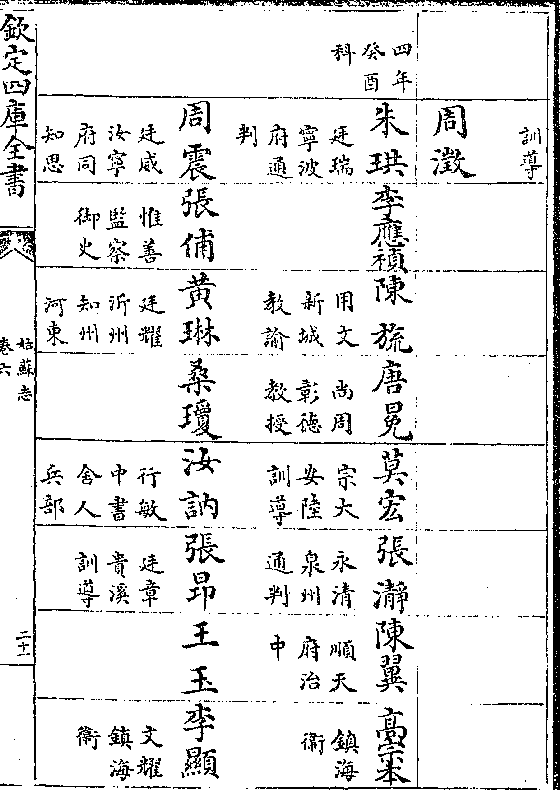 訓導
周澂
四年
癸酉
科
朱珙
廷瑞
寧波
府通
判
李應禎
陳旒
用文
新城
教諭
唐冕
尚周
彰德
教授
莫宏
宗大
安陸
訓導
張瀞
永清
泉州
通判
陳翼
順天
府治
中
高宗本
鎮海
衞
周震
廷威
汝寧
府同
知思
張俌
惟善
監察
御史
黄琳
廷耀
沂州
知州
河東
桑瓊
汝訥
行敏
中書
舍人
兵部
張昂
廷章
貴溪
訓導
王玉
李顯
文耀
鎮海
衞
欽定四庫全書
姑蘇志
卷六